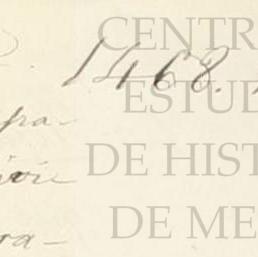 1468.
CENTR
ESTUD
DE HIST
DE ME
pa-
ra-